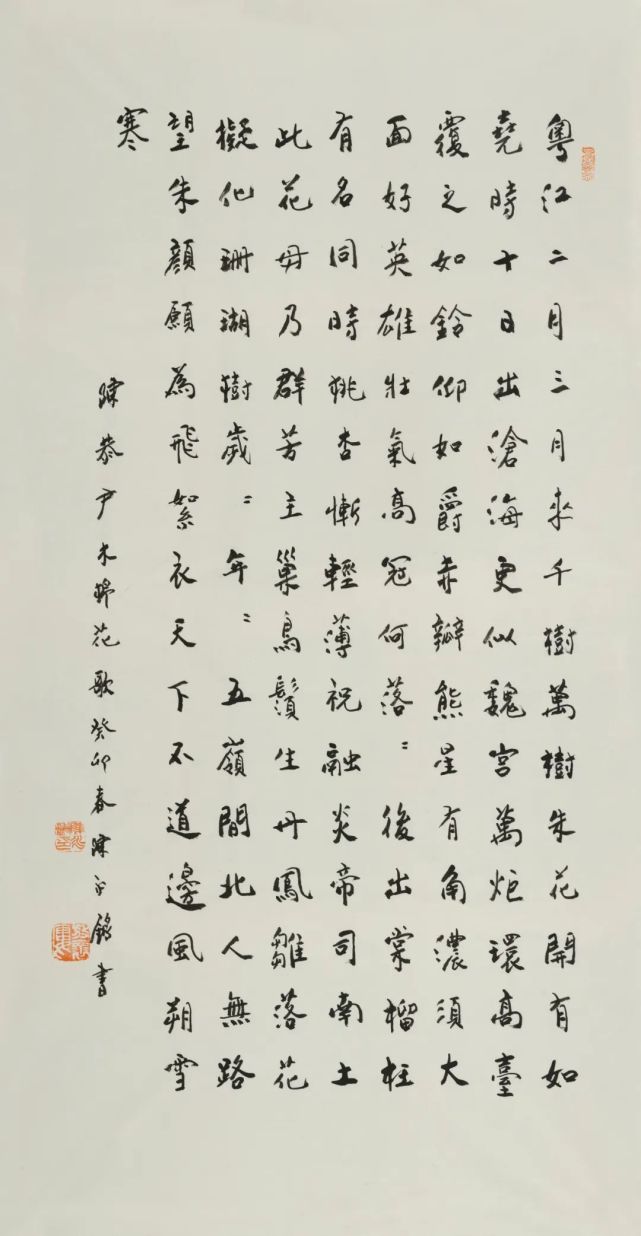 粤江二月三月來千樹萬樹朱花開有如
堯時十日出滄海更似魏宮萬炬環高臺
覆之如鈴仰如爵赤瓣熊星有角濃須大
面好英雄壯氣高冠何落〻後出棠榴枉
有名同時桃杏慚輕薄祝融炎帝司南土
此花毋乃群芳主巢鳥鬚生丹鳳雛落花
擬化珊瑚樹歲〻年〻五嶺間北人無路
望朱顏願為飛絮衣天下不道邊風朔雪
寒
陳恭尹木棉花歌癸卯春陳銘書